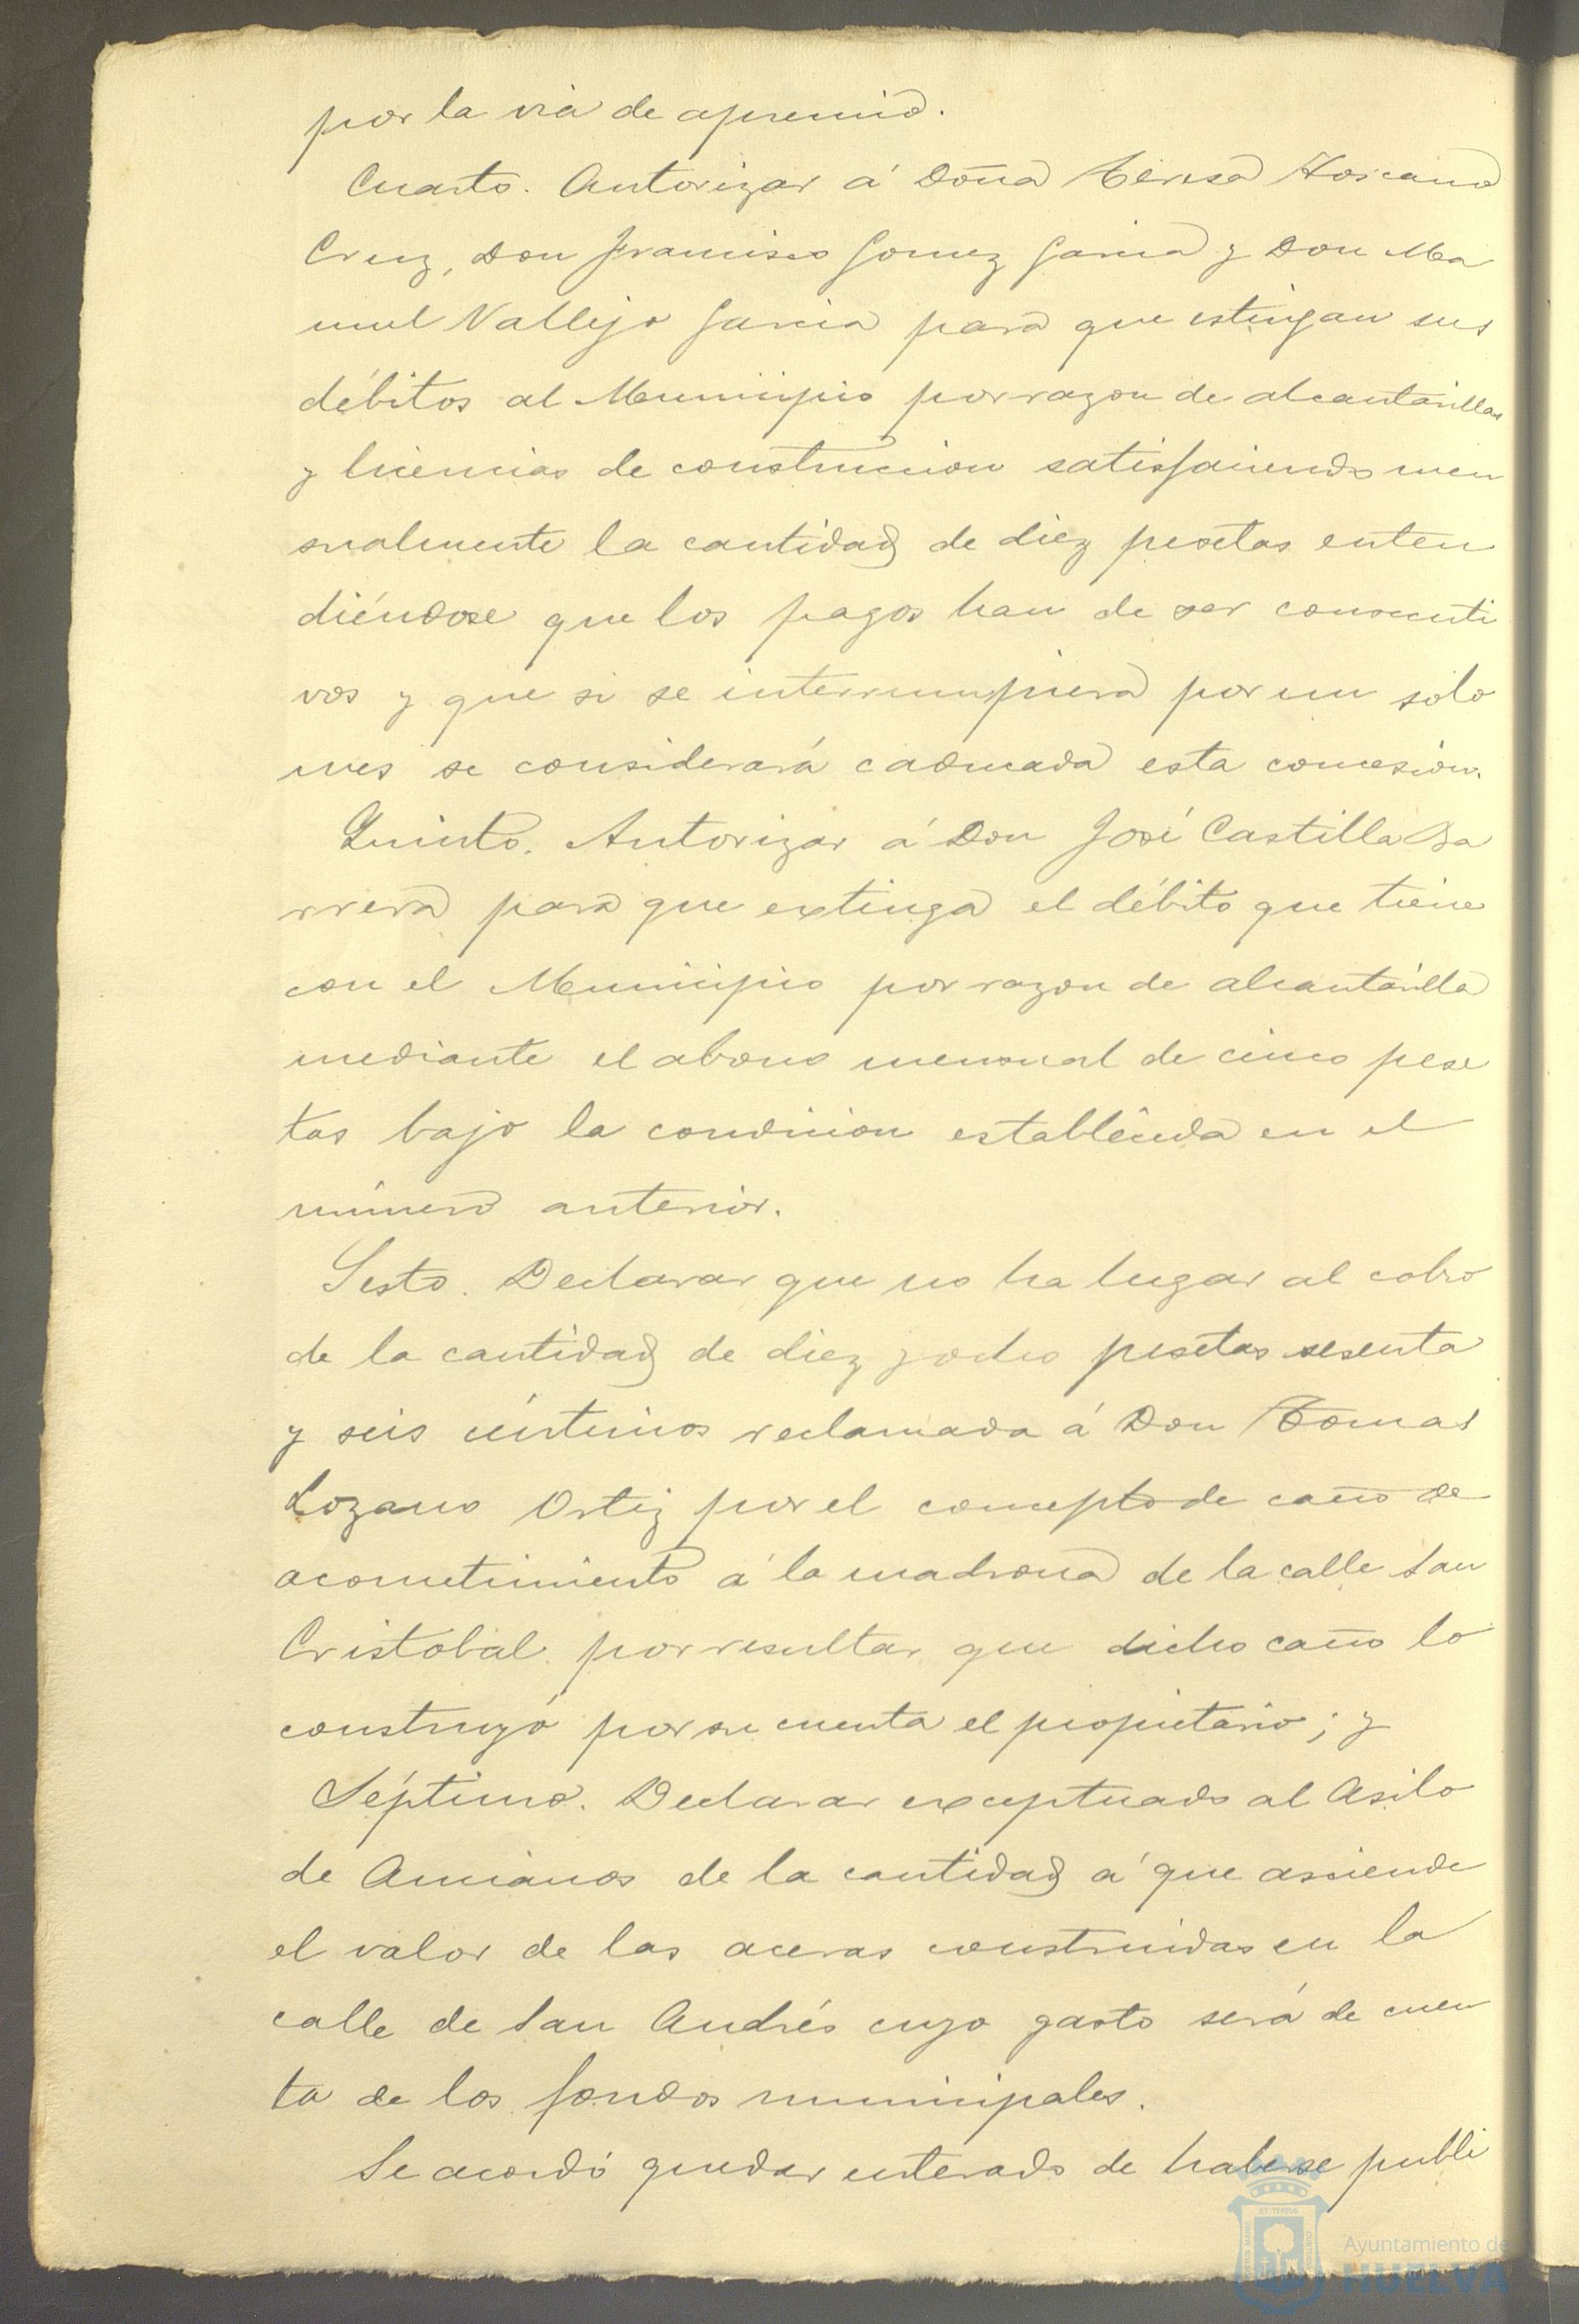 por la via de apremio.
Cuarto. Autorizar á Doña Teresa Toscano
Cruz, Don Francisco Gomez Garcia y Don Ma
nuel Vallejo Garcia para que estingan sus
débitos al Municipio por razon de alcantarillas
y licencias de construccion satisfaciendo men
sualmente la cantidad de diez pesetas enten
diéndose que los pagos han de ser consecuti
vos y que si se interrumpiera por un solo
mes se considerará caducada esta concesión.
Quinto. Autorizar á Don José Castilla Ba
rrera para que extinga el débito que tiene
con el Municipio por razon de alcantarilla
mediante el abono mensual de cinco pese
tas bajo la condicion establecida en el
número anterior.
Sesto. Declarar que no ha lugar al cobro
de la cantidad de diez y ocho pesetas sesenta
y seis céntimos reclamada á Don Tomas
Lozano Ortiz por el concepto de caño de
acometimiento á la madrona de la calle San
Cristobal por resultar que dicho caño lo
construyó por su cuenta el propietario; y
Séptimo. Declarar exceptuado al Asilo
de Ancianos de la cantidad á que asciende
el valor de las aceras construidas en la
calle de San Andrés cuyo gasto será de cuen
ta de los fondos municipales.
Se acordó quedar enterado de haberse publi
Ayuntamiento de
HUELVA